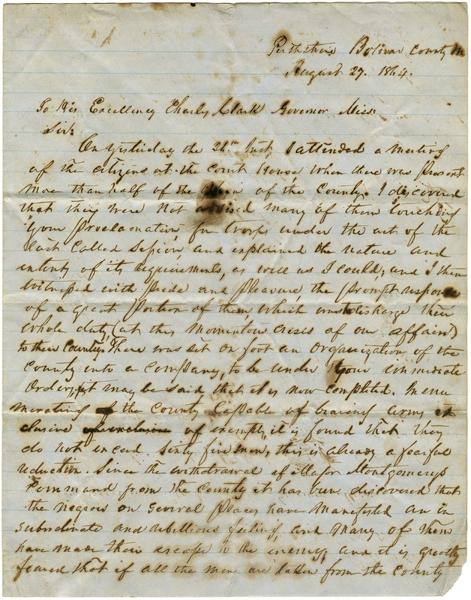 Bolivar County Mi
August 27. 1864.
To His Excellency Charles Clark Governor Miss
Sir,
On yesterday the 26th Inst, I attended a meeting
of the citizens at the Court House when there was present
more than half of the men of the County. I discovered
that they were not advised many of them touching
your Proclamation for troops under the act of the
last Called Session, and explained the nature and
extent of its requirements, as well as I could, and I then
witnessed with Pride and Pleasure, the prompt response
of a great portion of them, which was to discharge their
whole duty (at this Momentous Crisis of our affairs)
to their Country. There was set on foot an Organization of the
County into a Company, to be under your immediate
Orders, it may be said that it is now completed. In enu
merating of the County Capable of bearing arms ex
clusive of exempts, it is found that they
do not exceed Sixty five men, this is already a fearful
reduction. Since the withdrawal of Major Montgomerys
Command from the County it has been discovered that
the negroes on several places have manifested an in
subordinate and rebellious feeling, and many of them
have made their escape to the enemy, and it is greatly
feared that if all the men are taken from the County